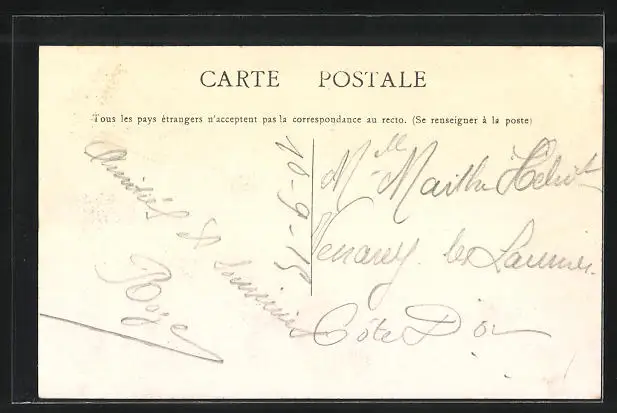 CARTE POSTALE
Tous les pays étrangers n'acceptent pas la correspondance au recto. (Se renseigner à la poste)
10-9-15
Amitiés et
Mlle Marthe
Venarey les Laumes
Côte D'or